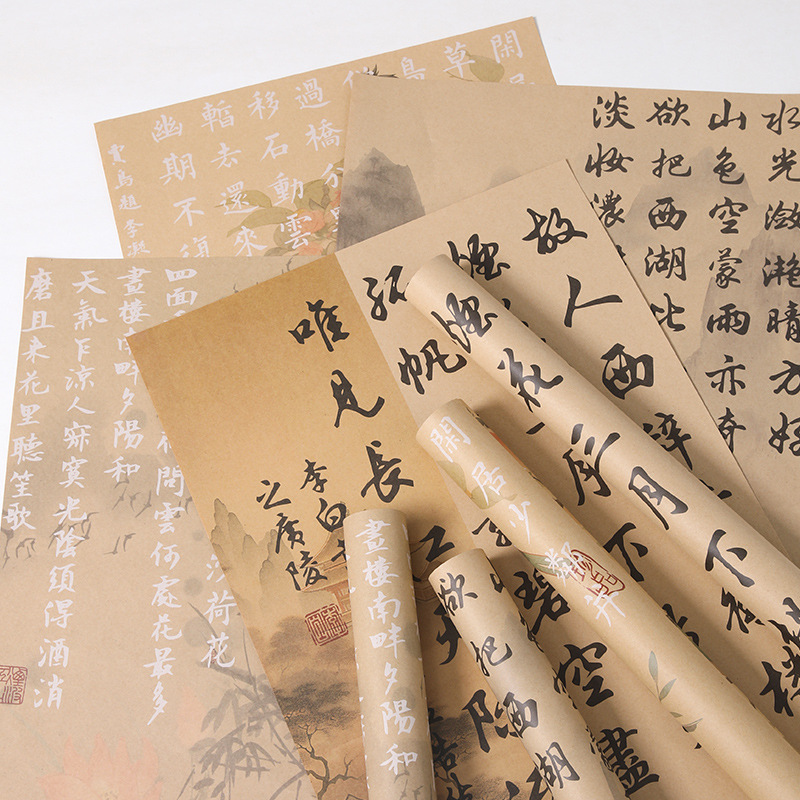 閑
草
鳥
過橋分
移石動雲
暫去還來
幽期不
賈島題李凝
水光瀲灩晴方好
山色空蒙雨亦奇
欲把西湖比
淡妝濃
荷花
問雲何處花最多
四面
晝樓南畔夕陽和
天氣乍涼人寂寞光陰須得酒消
磨且來花里聽笙歌
故人西辭
煙
孤帆
碧空盡
唯見長江
李白
之廣陵
煙花三月下
閑居少鄰并
欲把西湖
晝樓南畔夕陽和